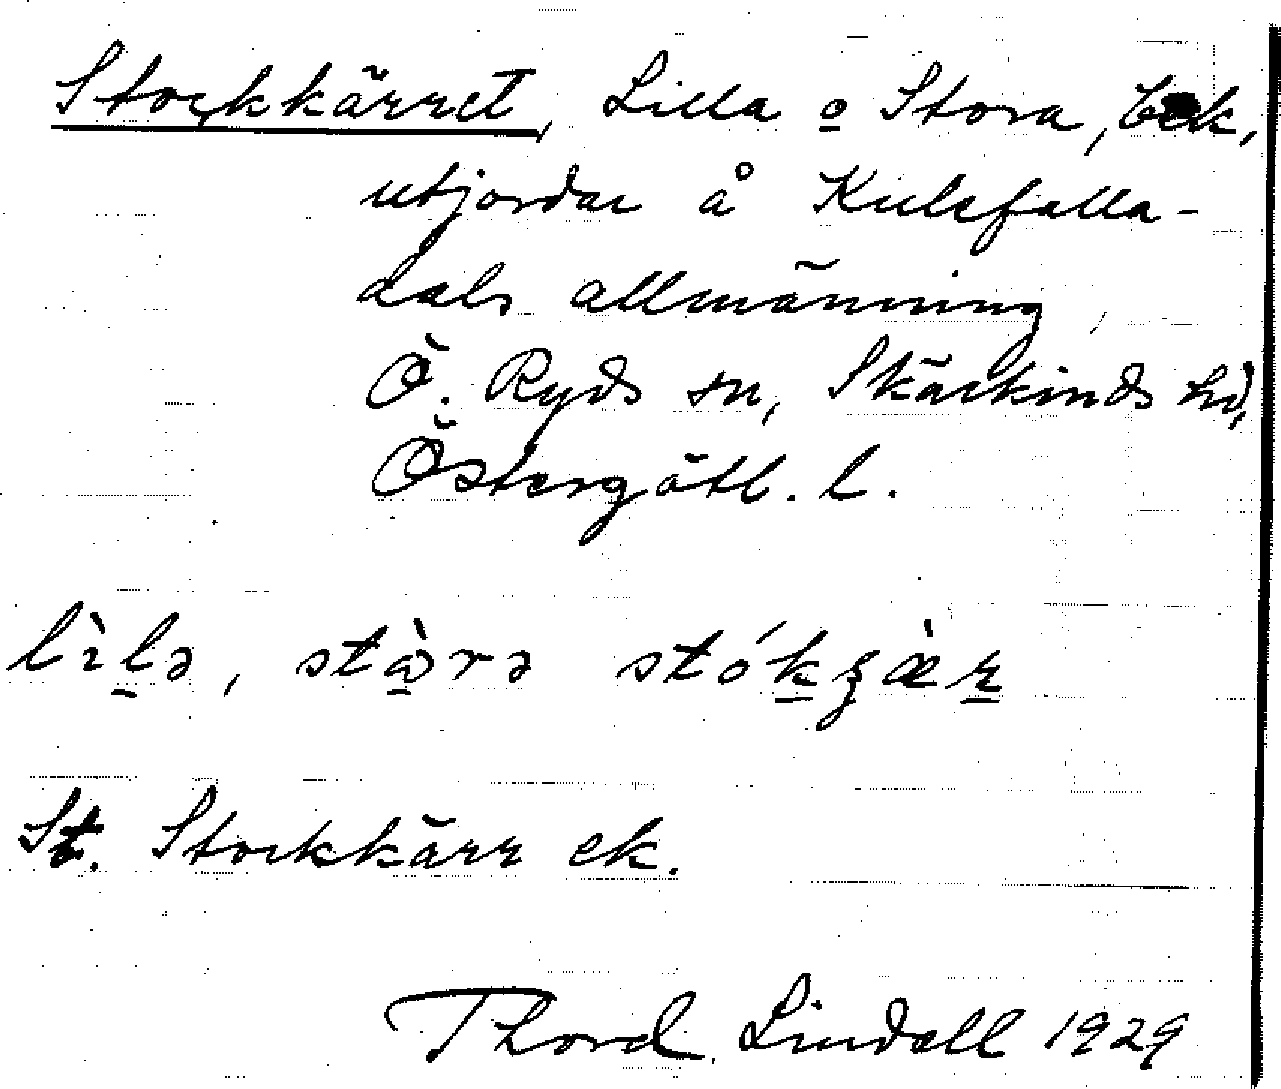 Stockkärret, Lilla o Stora,
utjordar å Kulefalla-
dals allmänning,
Ö. Ryds sn, Skärkinds hd,
Östergötl. l.
lìlə, stὼrə stókȥær
St. Stockkärr ek.
Thord Lindell 1929